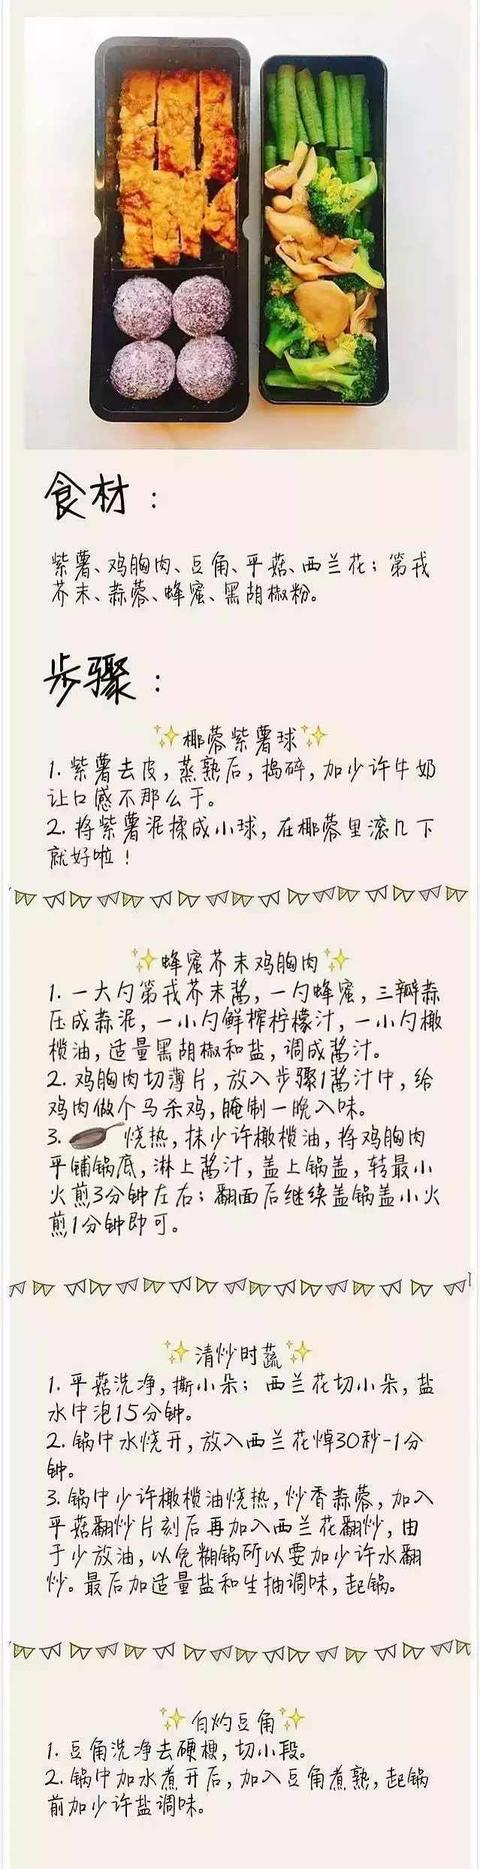 食材：
紫薯、鸡胸肉、豆角、平菇、西兰花；第戎
芥末、蒜蓉、蜂蜜、黑胡椒粉。
步骤：
椰蓉紫薯球
1. 紫薯去皮，蒸熟后，捣碎，加少许牛奶
让口感不那么干。
2. 将紫薯泥揉成小球，在椰蓉里滚几下
就好啦！
蜂蜜芥末鸡胸肉
1. 一大勺第戎芥末酱，一勺蜂蜜，三瓣蒜
压成蒜泥，一小勺鲜榨柠檬汁，一小勺橄
榄油，适量黑胡椒和盐，调成酱汁。
2. 鸡胸肉切薄片，放入步骤1酱汁中，给
鸡肉做个马杀鸡，腌制一晚入味。
3. 烧热，抹少许橄榄油，将鸡胸肉
平铺锅底，淋上酱汁，盖上锅盖，转最小
火煎3分钟左右；翻面后继续盖锅盖小火
煎1分钟即可。
清炒时蔬
1. 平菇洗净，撕小朵；西兰花切小朵，盐
水中泡15分钟。
2. 锅中水烧开，放入西兰花焯30秒-1分
钟。
3. 锅中少许橄榄油烧热，炒香蒜蓉，加入
平菇翻炒片刻后再加入西兰花翻炒，由
于少放油，以免糊锅所以要加少许水翻
炒。最后加适量盐和生抽调味，起锅。
白灼豆角
1. 豆角洗净去硬梗，切小段。
2. 锅中加水煮开后，加入豆角煮熟，起锅
前加少许盐调味。